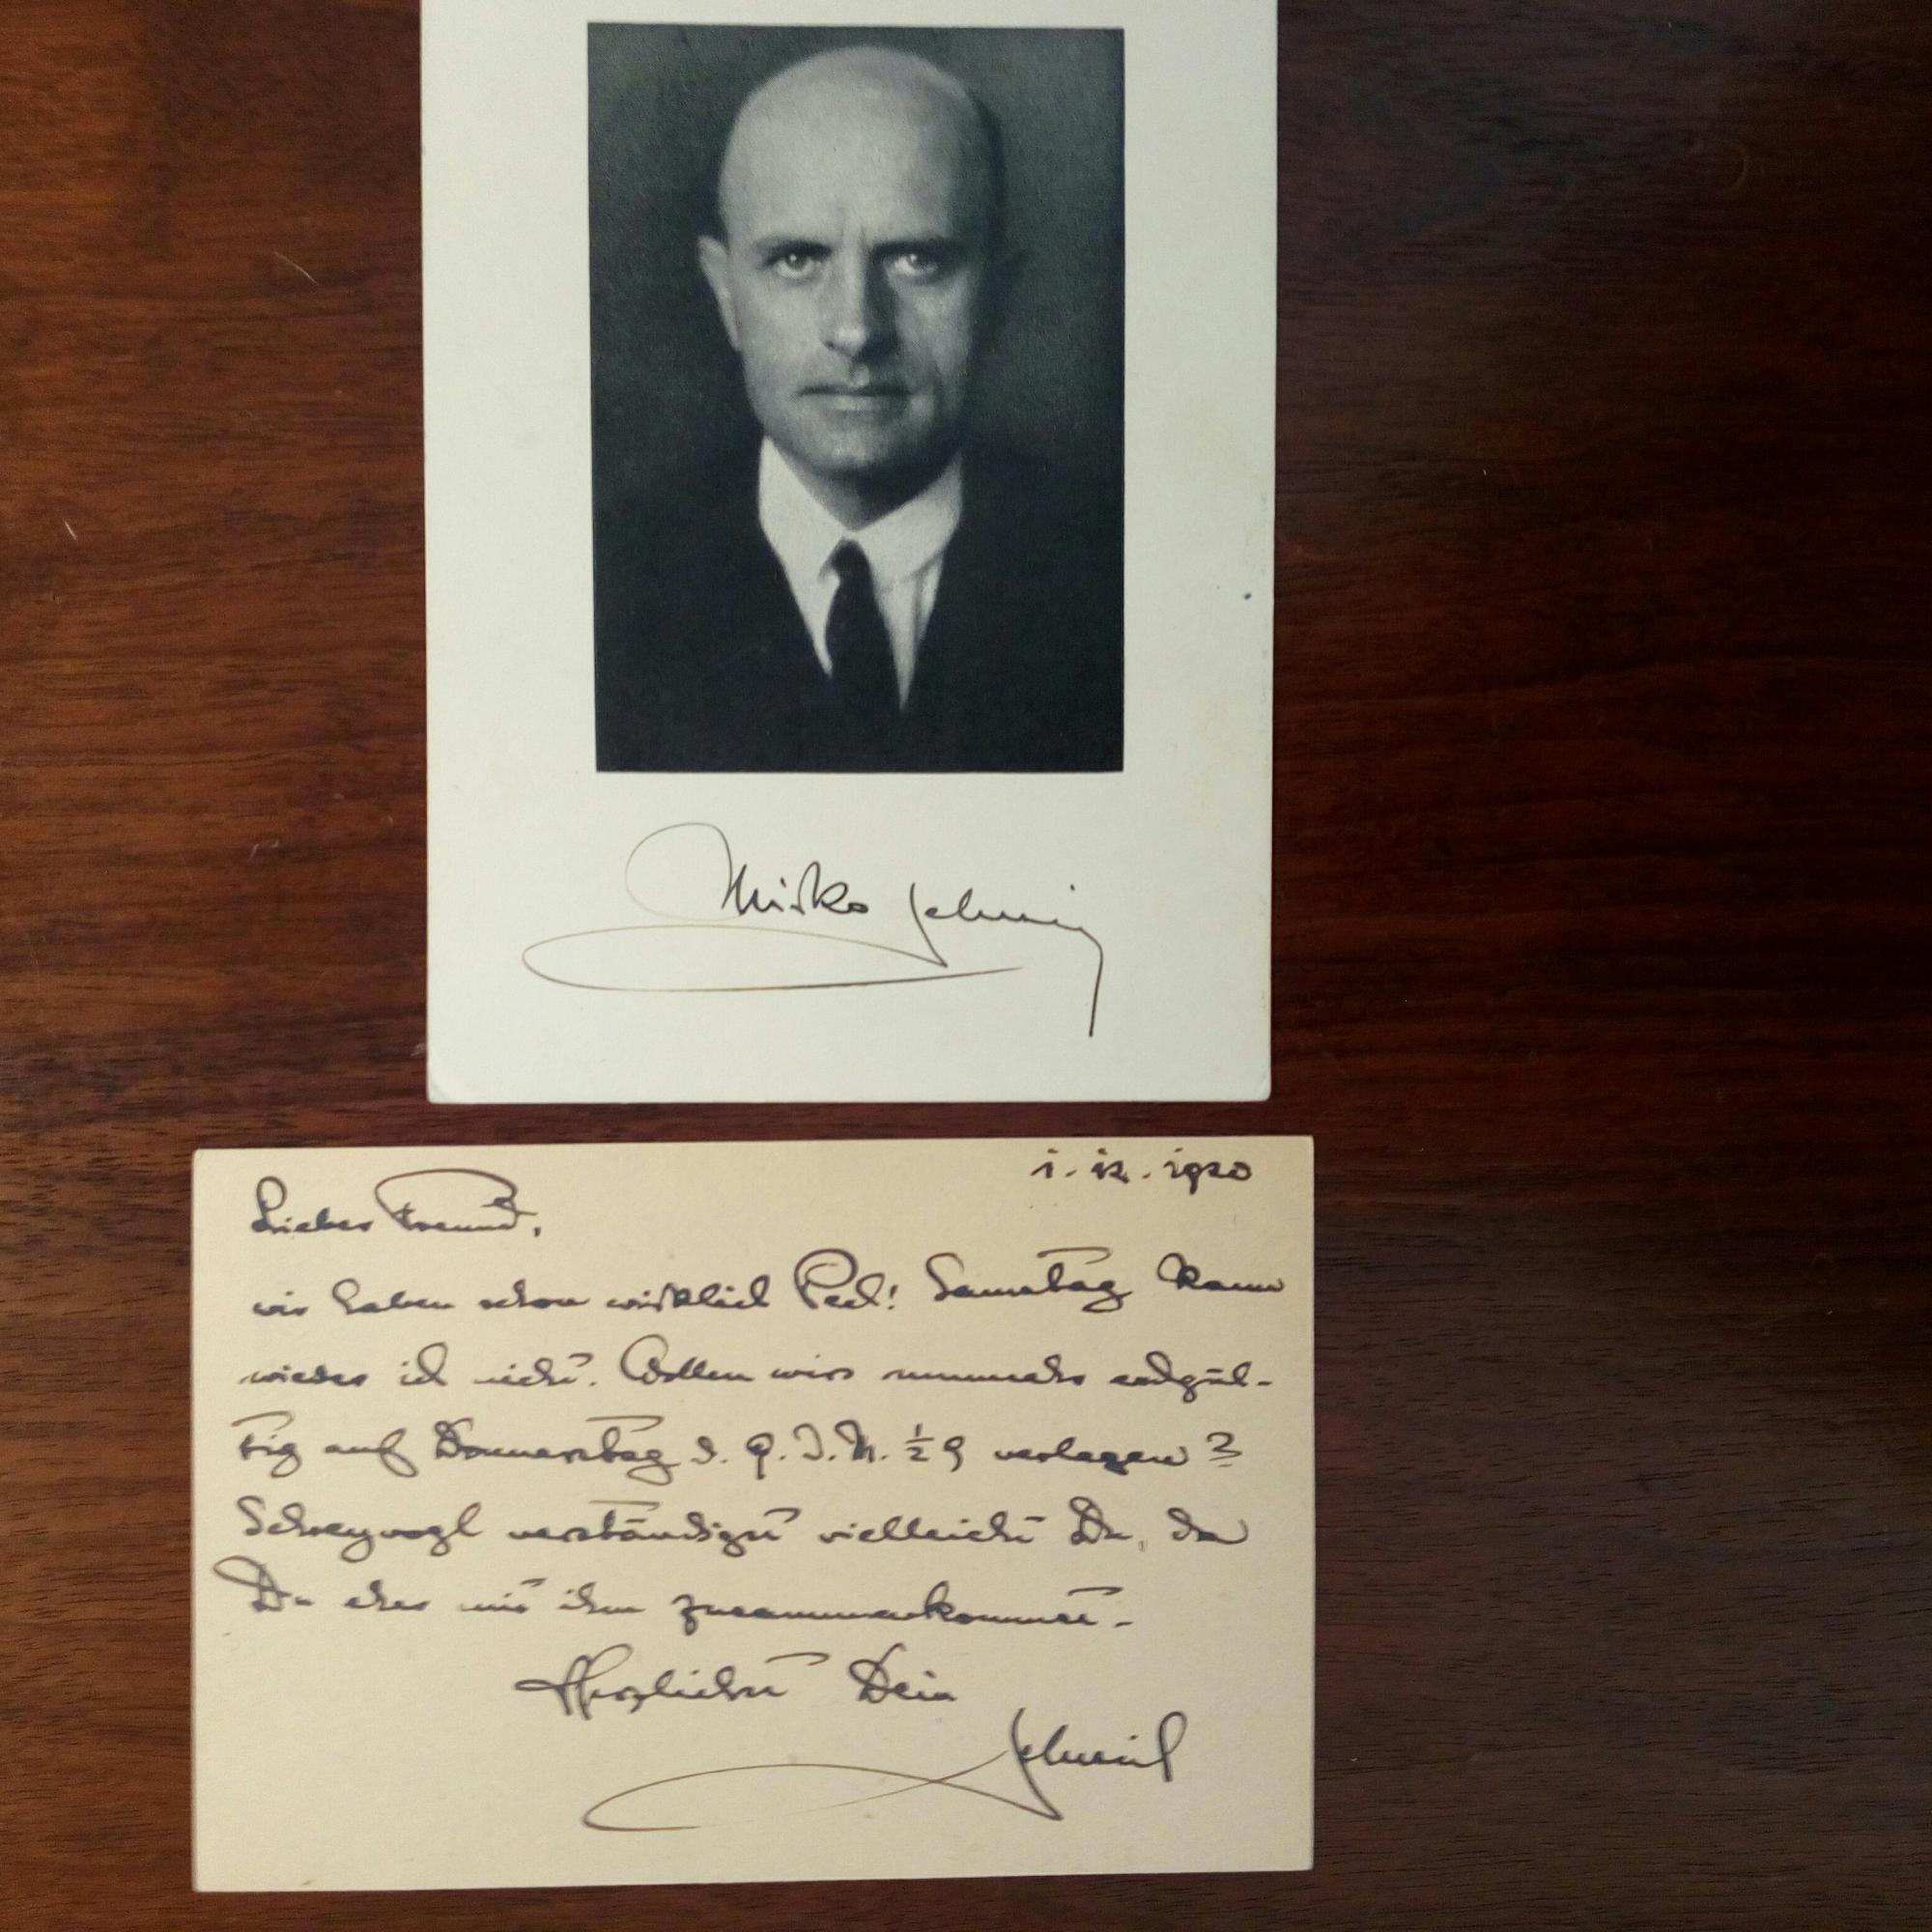 Mirko Jelusich
1. 12. 1920
Lieber Freund,
wir haben schon wirklich Pech! Samstag kann
wieder ich nicht. Wollen wirs nunmehr endgül-
tig auf Donnerstag d. 9. d. M. ½ 9 verlegen?
Schreyvogl verständigst vielleicht Du, da
Du eher mit ihm zusammenkommst. -
Herzlichst Dein
Jelusich